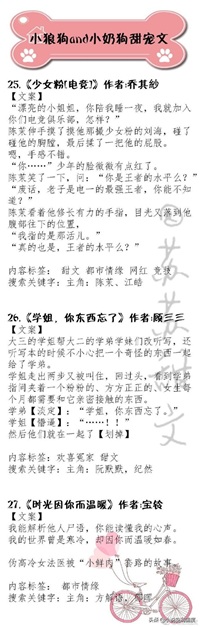 小狼狗and小奶狗甜宠文
25.《少女粉[电竞]》作者:乔其纱
【文案】
“漂亮的小姐姐，你陪我睡一夜，我就加入
你们电竞俱乐部，怎样？”
陈茉伸手摸了摸他那撮少女粉的刘海，碰了
碰他的胸膛，最后揉了一把他的屁股。
嗯，手感不错。
“你……”少年的脸微微有点红了。
陈茉笑了一下，问：“你是王者的水平么？”
“废话，老子是电一的最强王者，你能不知
道？”
陈茉看着他修长有力的手指，目光又落到他
腹部往下的位置，
“我指的是那活儿。”
“真的也是，王者的水平么？”
内容标签： 甜文 都市情缘 网红 竞技
搜索关键字：主角：陈茉、江皓
26.《学姐，你东西忘了》作者:顾三三
【文案】
大三的学姐帮大二的学弟学妹们改听写，还
听写本的时候不小心把一个奇怪的东西一起
给了学弟。
学姐走出两步又被叫住，回过头，看到学弟
指间夹着一个粉粉的、方方正正的、女生每
个月都需要和它亲密接触的东西。
学弟【淡定】：“学姐，你东西忘了。”
学姐【懵逼】：“……！！”
然后他们就在一起了【划掉】
内容标签：欢喜冤家 甜文
搜索关键字：主角：阮默默，纪然
27.《时光因你而温暖》作者:宝铃
【文案】
我能解析他人尸语，你能读懂我的心声。
我的世界曾是寒冷，却因你而温暖如春。
伪高冷女法医被“小鲜肉”套路的故事
内容标签： 都市情缘
搜索关键字：主角：方解语，
苏苏甜文